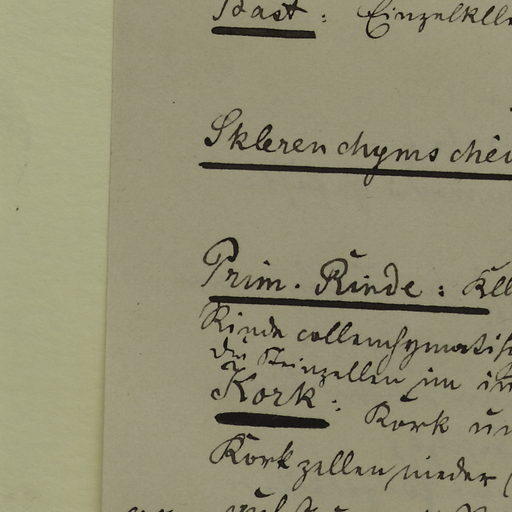 Bast: Einzelkll
Sklerenchymschei
Prim. Rinde: Kll
Rinde collenchymatisch
die Steinzellen im in
Kork: Kork un
Korkzellen nieder